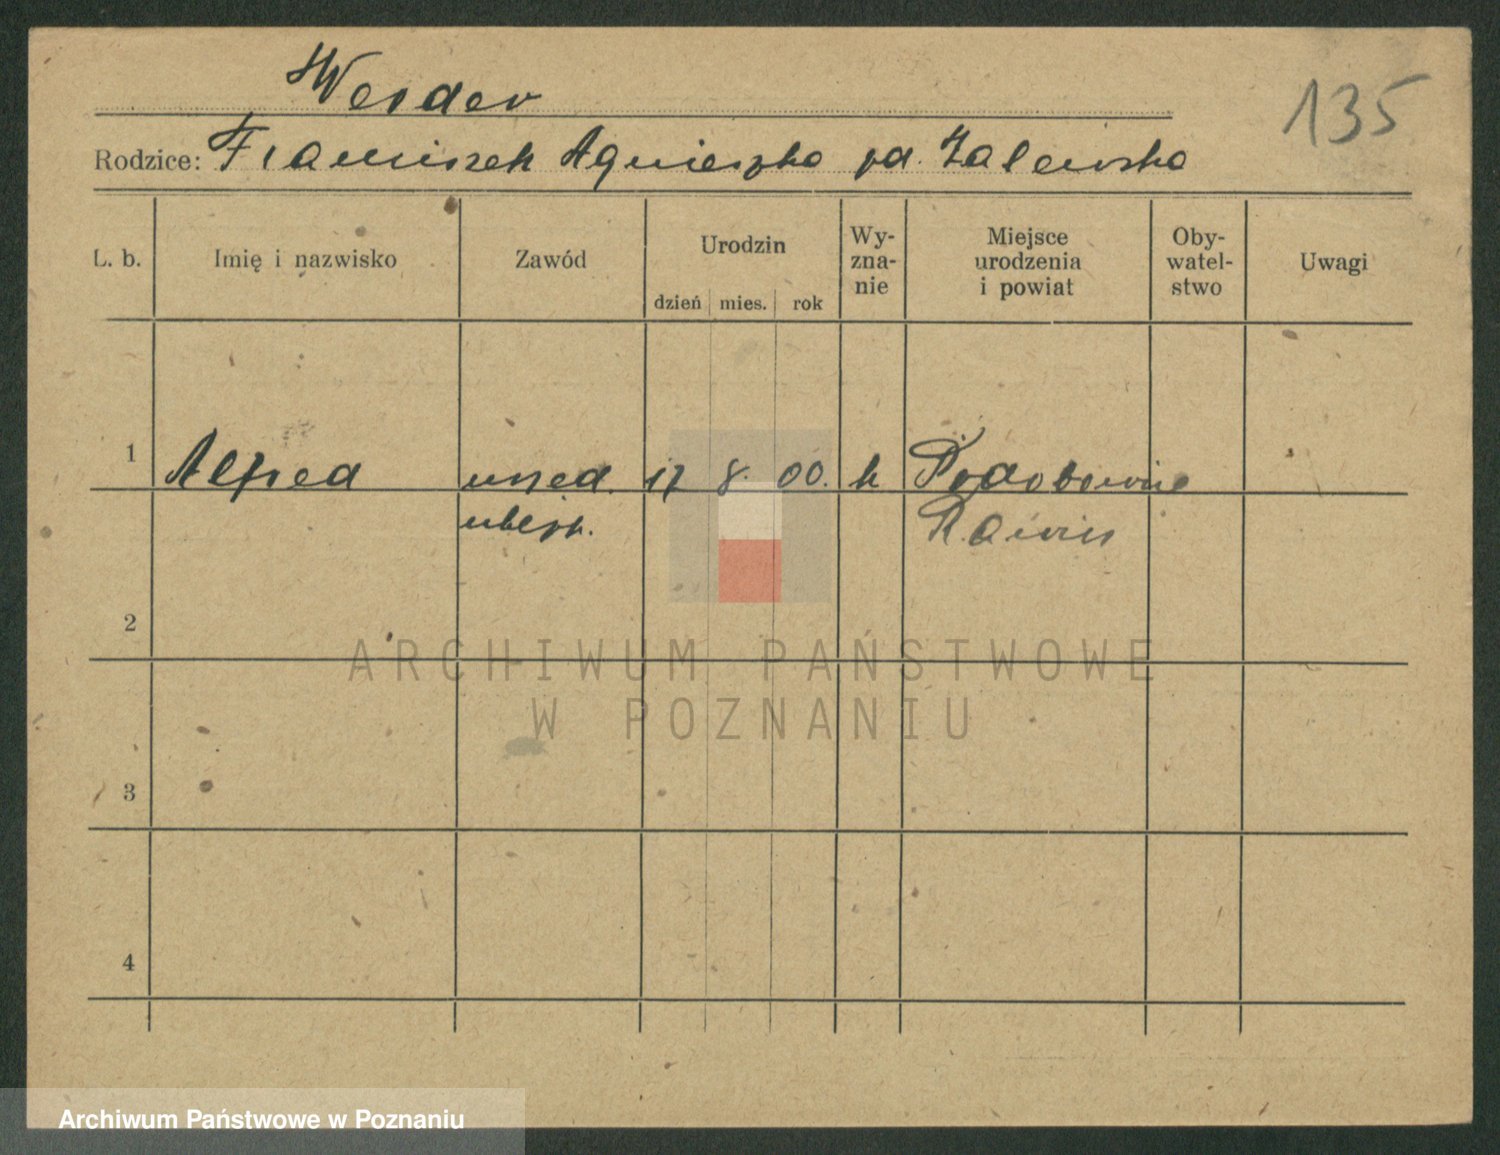 Werder
135
Rodzice: Franciszek Agnieszka zd. Zalewska
L. b. Imię i nazwisko Zawód Urodzin dzień mies. rok Wy-zna-nie Miejsce urodzenia i powiat Oby-watel-stwo Uwagi
1 Alfred urzęd. 17 8. 00. k
ubezp. Rawicz
2
ARCHIWUM PAŃSTWOWE
W POZNANIU
3
4
Archiwum Państwowe w Poznaniu